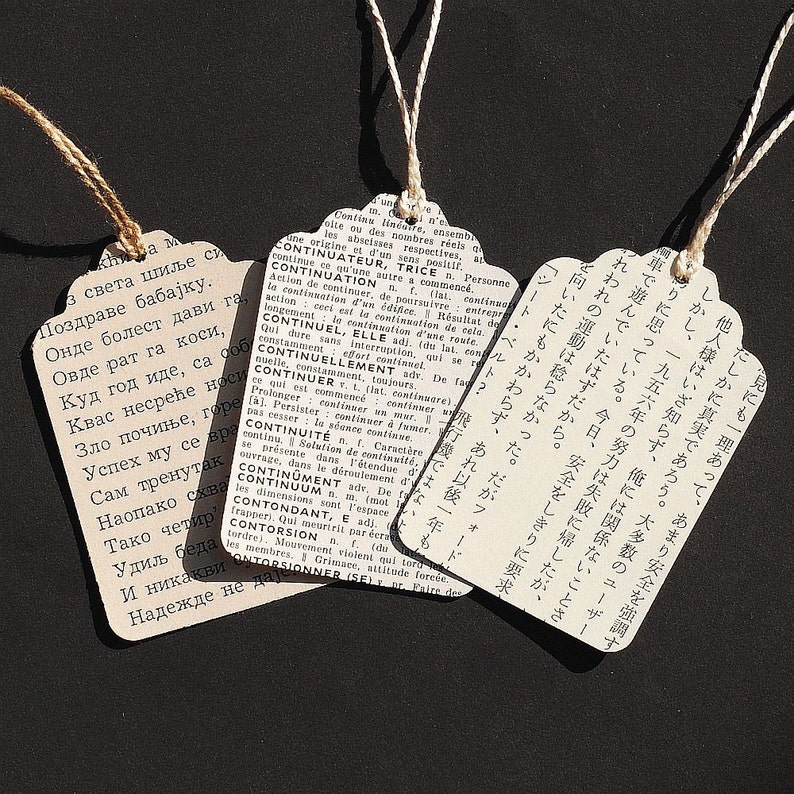 з света шиље си
Поздраве бабајку.
Онде болест дави га,
Овде рат га коси,
Куд год иде, са собо
Квас несреће носи
Зло почиње, горе
Успех му се вра
Сам тренутак
Наопако схва
Тако четир'
Удиљ беда
И никакви
Надежде не дај
n. m. Ce qui n'es
Continu linéaire, ensemble
ou des nombres réels q
les abscisses respectives,
une origine et d'un sens positif.
CONTINUATEUR, TRICE n. Personne
continue ce qu'une autre a commencé.
CONTINUATION n. f. (lat. continua
Action de continuer, de poursuivre : entrepren
la continuation d'un édifice. || Résultat de
action : ceci est la continuation d'une route.
longement : la continuation de cela.
CONTINUEL, ELLE adj. (du lat. cont
Qui dure sans interruption, qui se re
constamment : effort continuel.
CONTINUELLEMENT adv. De faç
nuelle, constamment, toujours.
CONTINUER v. t. (lat. continuare)
ce qui est commencé : continuer un
Prolonger : continuer un mur. ||
[à]. Persister : continuer à fumer.
pas cesser : la séance continue.
CONTINUITÉ n. f. Caractère
continu. || Solution de continuité,
se présente dans l'étendue d'
ouvrage, dans le déroulement d'
CONTINÛMENT adv. De fa
CONTINUUM n. m. (mot
les dimensions sont l'espace
CONTONDANT, E adj.
frapper). Qui meurtrit par écrase
CONTORSION n. f. (du
tordre). Mouvement violent qui tord les
les membres. || Grimace, attitude forcée.
ONTORSIONNER (SE) v. pr. Faire des
見にも一理あって、あまり安全を強調す
たしかに真実であろう。大多数のユーザー
他人様はいざ知らず、俺には関係ないことさ
しかし、一九五六年の努力は失敗に帰したが、
りに思っている。今日、安全をしきりに要求
輪車で遊んでいたはずだから。
れわれの運動は稔らなかった。だがフォード
を向いたにもかかわらず、あれ以後一年も
「シート・ベルト？飛行機ではないよ